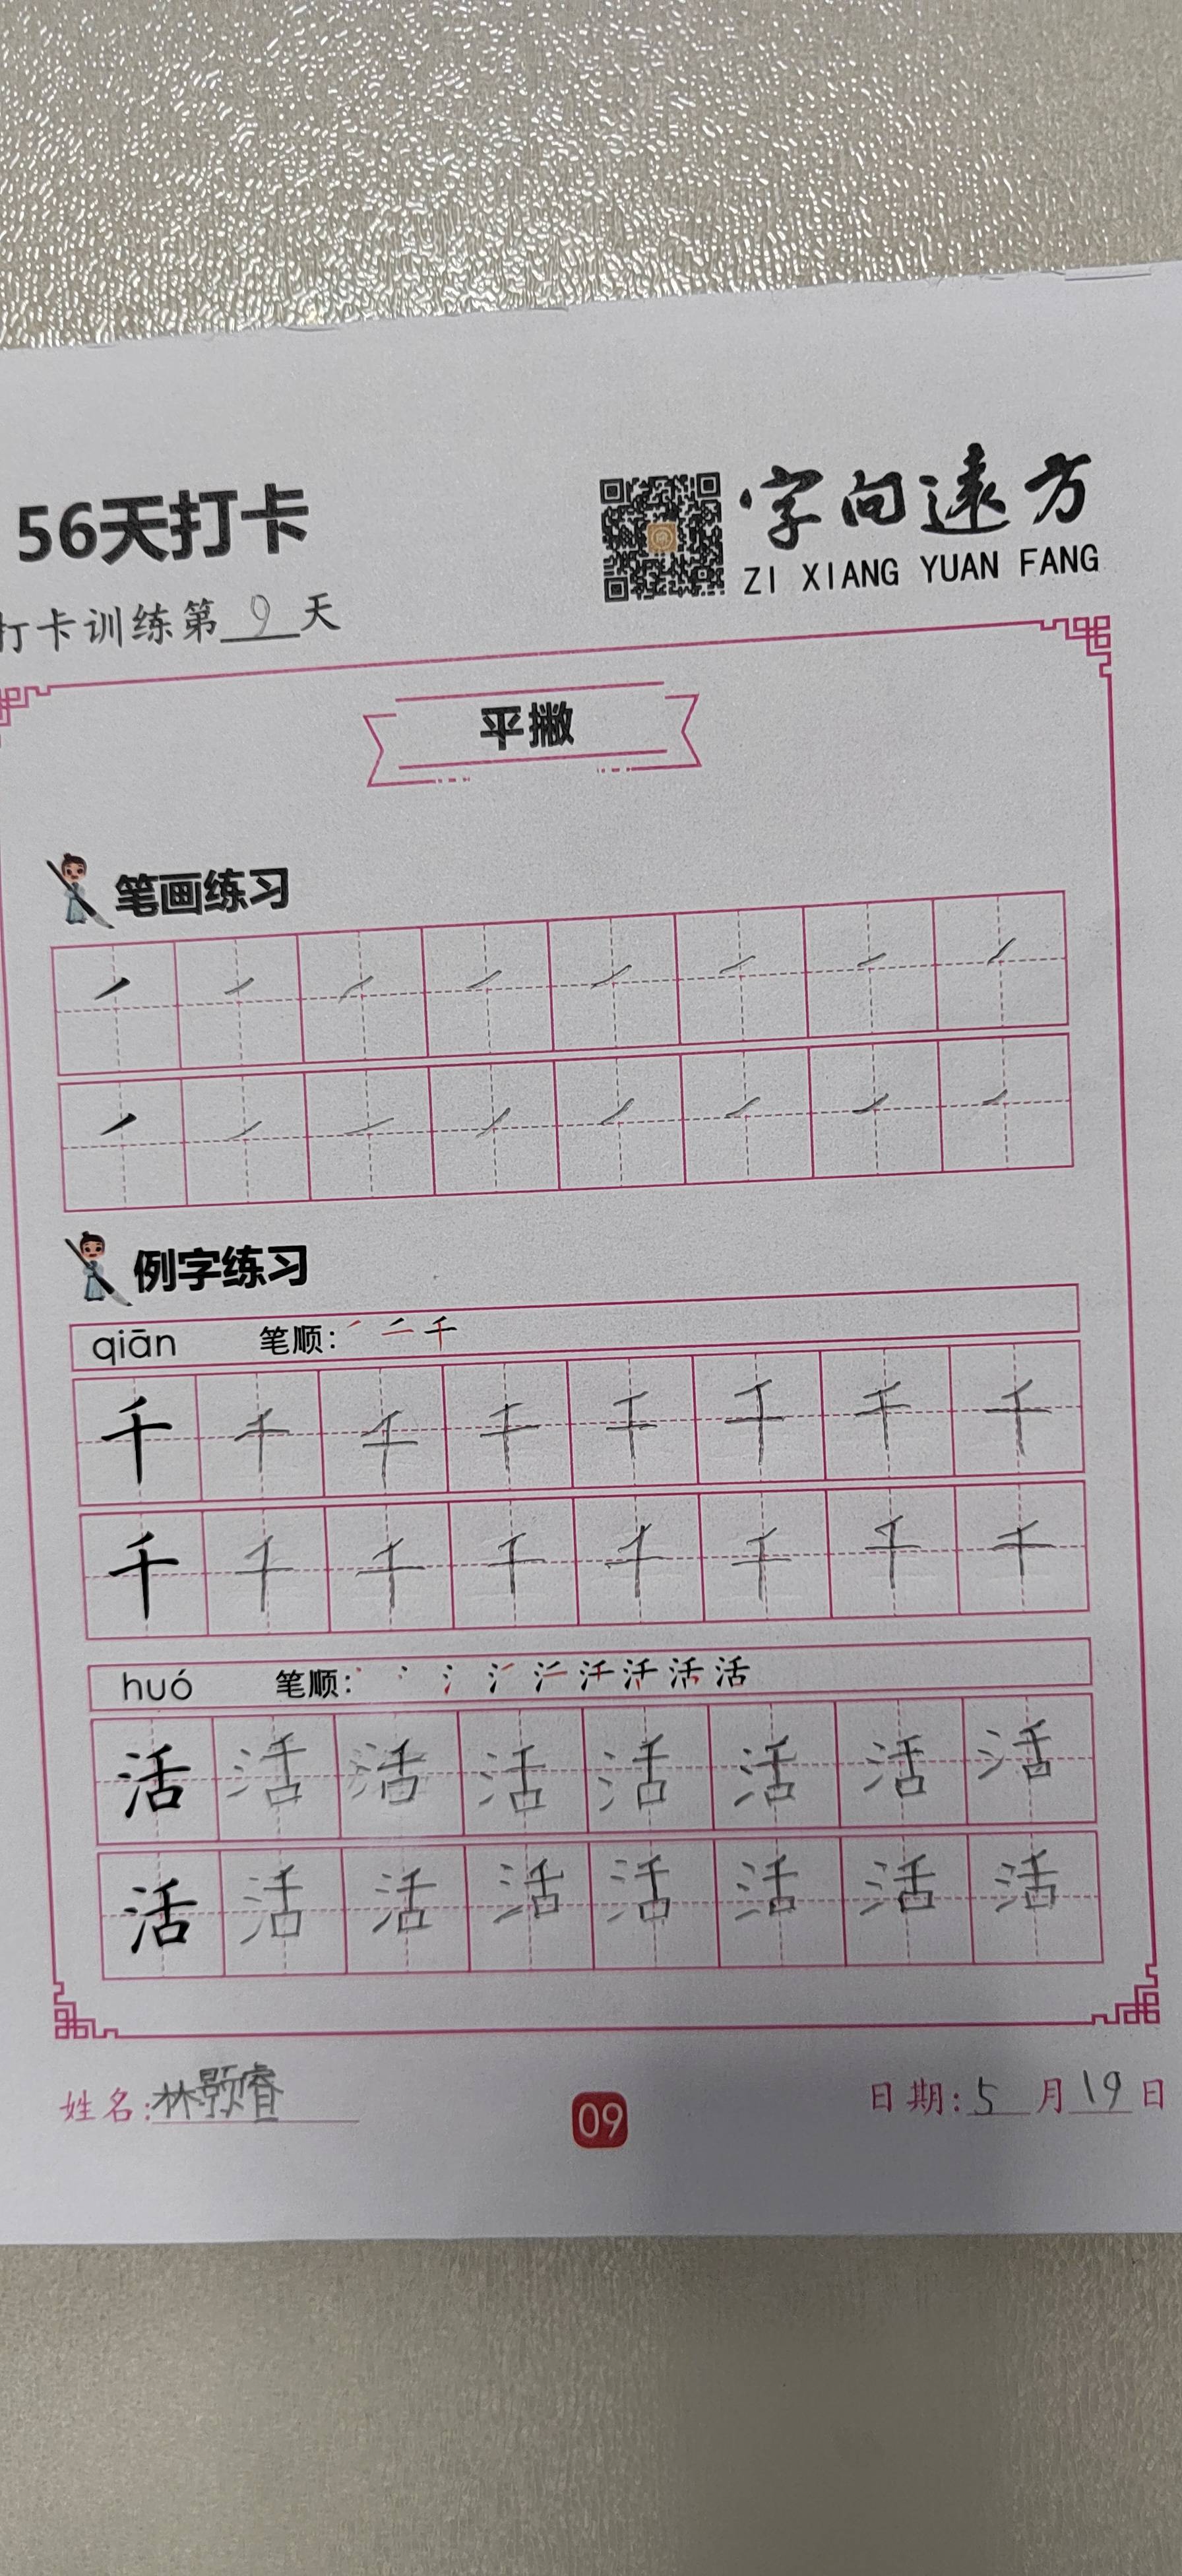 56天打卡
字向遠方
ZI XIANG YUAN FANG
打卡训练第9天
平撇
笔画练习
例字练习
qiān 笔顺: 千
千千千千千千千千
千千千千千千千千
huó 笔顺: 活
活活活活活活活活
活活活活活活活活
姓名:林颢睿
09
日期:5月19日